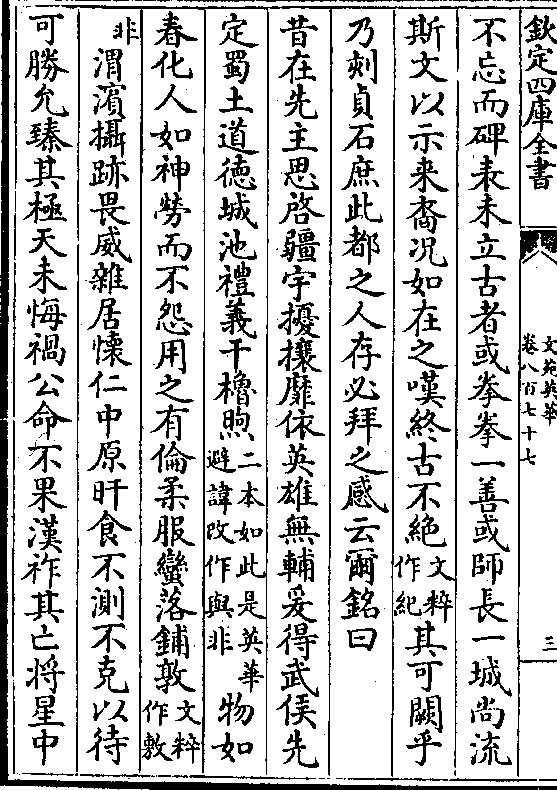 欽定四庫全書
文苑英華
卷八百七十七
三
不忘而碑表未立古者或拳拳一善或師長一城尚流
斯文以示来裔况如在之嘆終古不絶文粹作紀其可闕乎
乃刻貞石庶此都之人存必拜之感云爾銘曰
昔在先主思啓疆宇擾攘靡依英雄無輔爰得武侯先
定蜀土道德城池禮義干櫓煦二本如此是英華避諱改作與非物如
春化人如神勞而不怨用之有倫柔服蠻落鋪敦文粹作敷
非渭濱攝跡畏威雜居懐仁中原旰食不測不克以待
可勝允臻其極天未悔禍公命不果漢祚其亡将星中